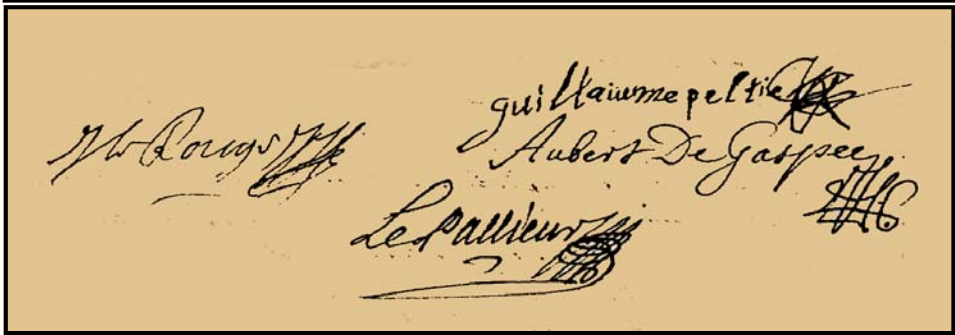 guillaiume peltier
Aubert De Gaspee
LePallieur